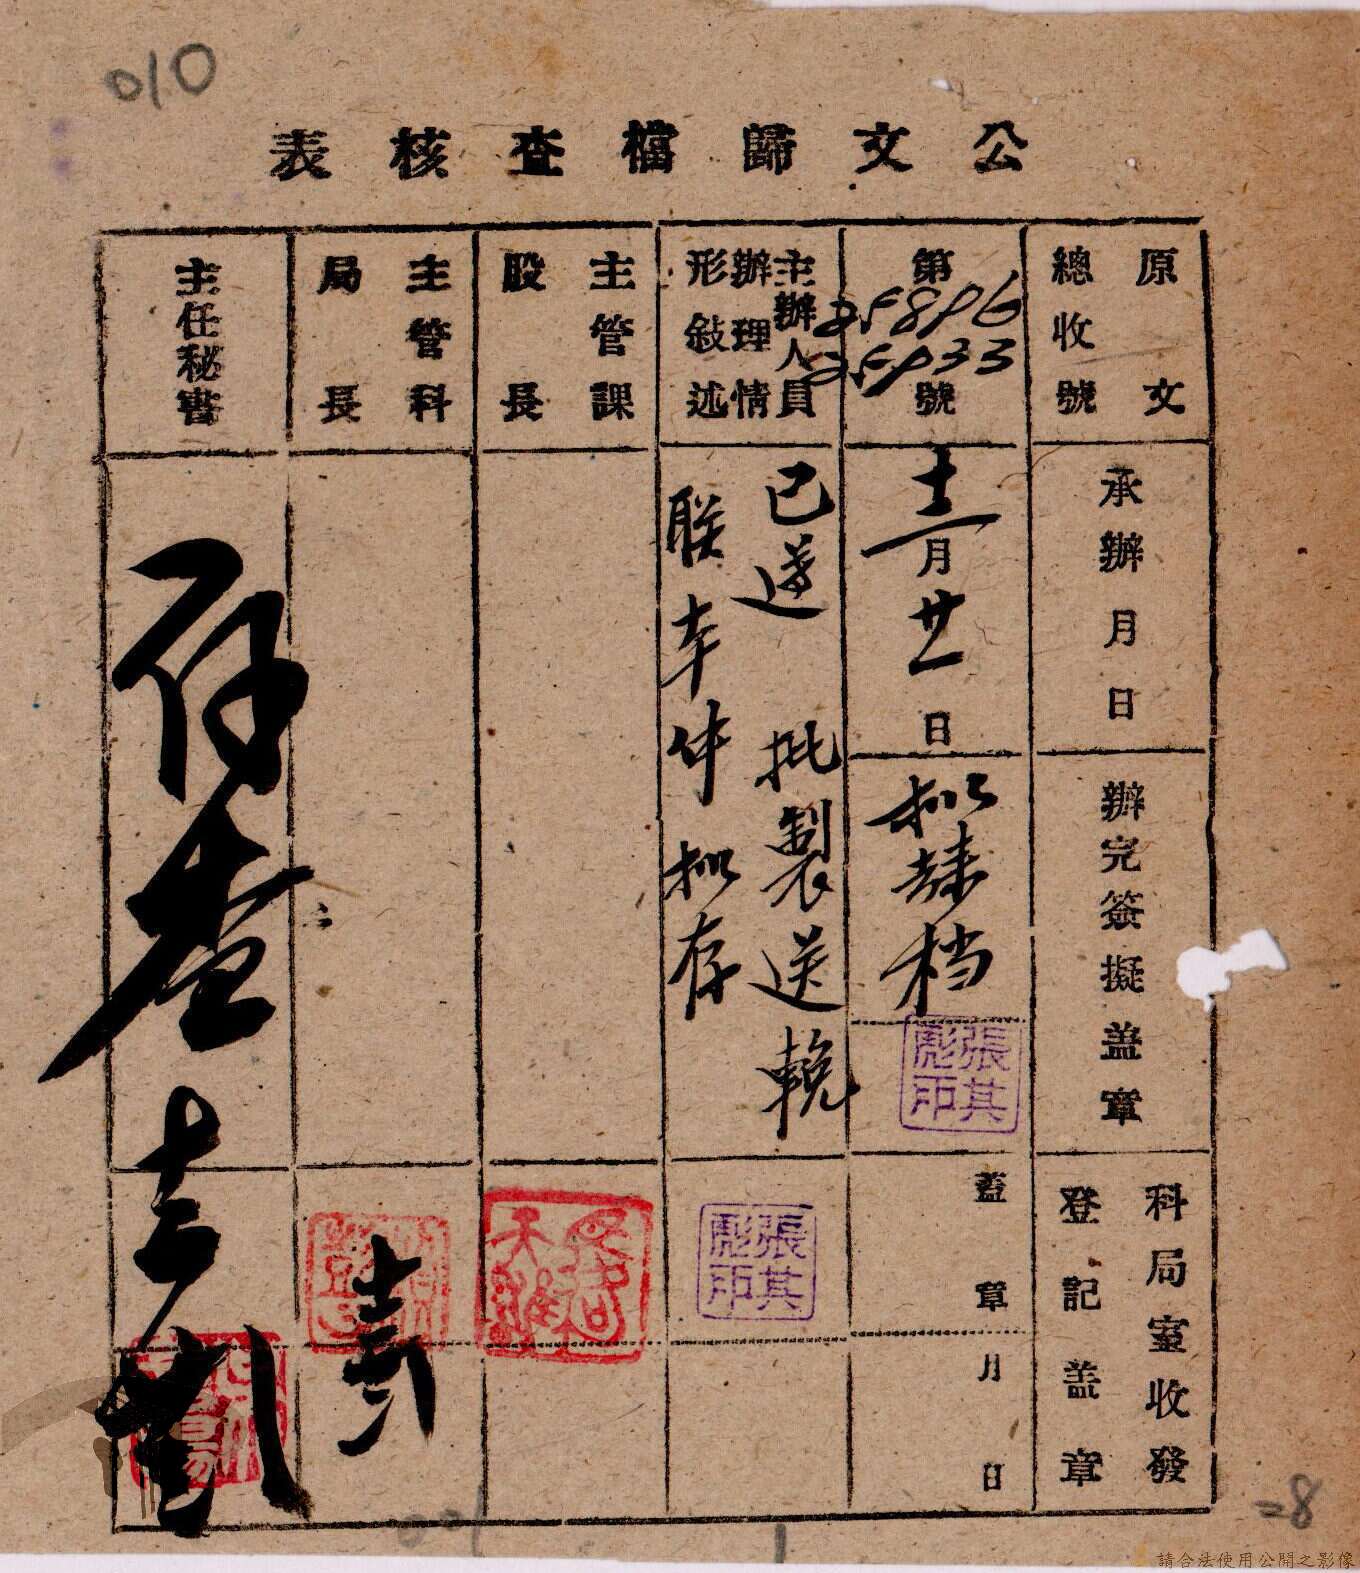 010
公文歸檔查核表
原文
總收號
第25896號
25933
主辦人員
辦理情
形敍述
主管課
股長
主管科
局長
主任秘書
承辦月日
十二月廿一日
已遵 批製送輓
联本件拟存
存查
辦完簽擬蓋章
拟歸档
張其
彪印
科局室收發
登記蓋章
蓋章
月日
張其
彪印
=8
請合法使用公開之影像